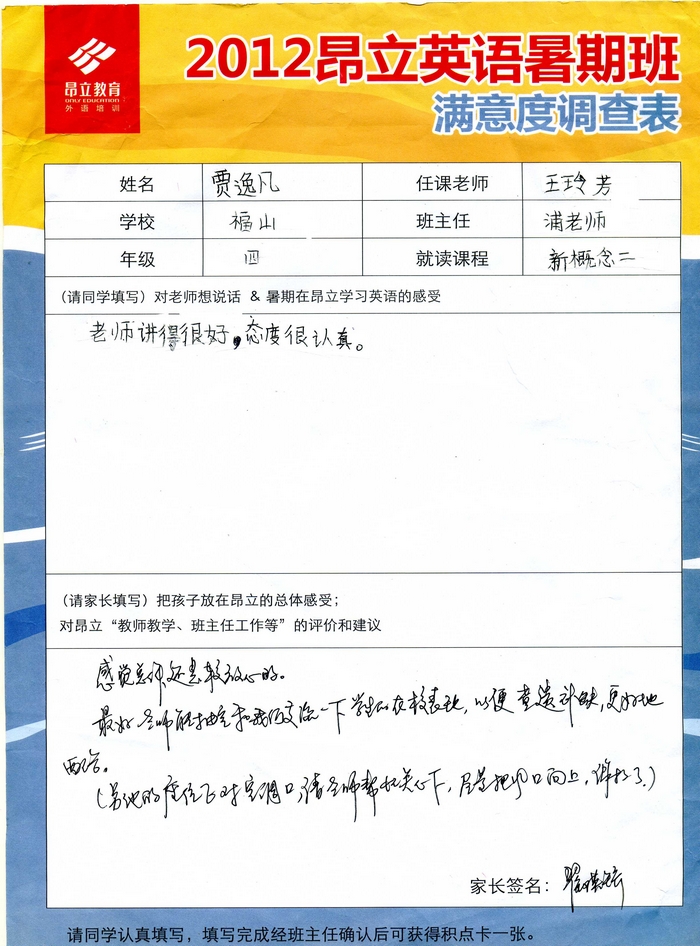 昂立教育
ONLY EDUCATION
外语培训
2012昂立英语暑期班
满意度调查表
姓名 贾逸凡 任课老师 王玲芳
学校 福山 班主任 浦老师
年级 四 就读课程 新概念二
(请同学填写)对老师想说话 & 暑期在昂立学习英语的感受
老师讲得很好,态度很认真。
(请家长填写)把孩子放在昂立的总体感受;
对昂立“教师教学、班主任工作等”的评价和建议
感觉老师还是较放心的。
最好老师能抽空和我们交流一下学生在校表现,以便查遗补缺,更好地
配合。
(另他的座位正对空调口,请老师帮忙关心下,尽量把风口向上,谢谢了!)
家长签名:
请同学认真填写,填写完成经班主任确认后可获得积点卡一张。